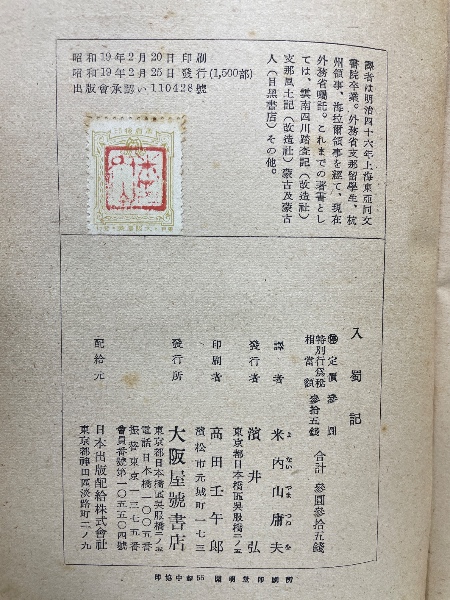 譯者は明治四十六年上海東亞同文
書院卒業。外務省支那留學生、杭
州領事、海拉爾領事を經て、現在
外務省囑託。これまでの著書とし
ては、雲南四川踏査記(改造社)
支那風土記(改造社)蒙古及蒙古
人(目黑書店)その他。
昭和19年2月20日 印刷
昭和19年2月25日 發行(1,500部)
出版會承認い110428號
入蜀記
定價 參圓
特別行爲稅相當額 參拾五錢
合計 參圓參拾五錢
譯者 米內山庸夫
よ ない やま つね を
發行者 濱井弘
東京都日本橋區吳服橋二ノ五
印刷者 高田壬午郎
濱松市元城町一七三
發行所 大阪屋號書店
東京都日本橋區吳服橋二ノ五
電話日本橋一〇〇五番
振替東京一三七五番
會員番號第一〇五五〇四號
配給元 日本出版配給株式會社
東京都神田區淡路町二ノ九
印協中靜55 開明堂印刷所